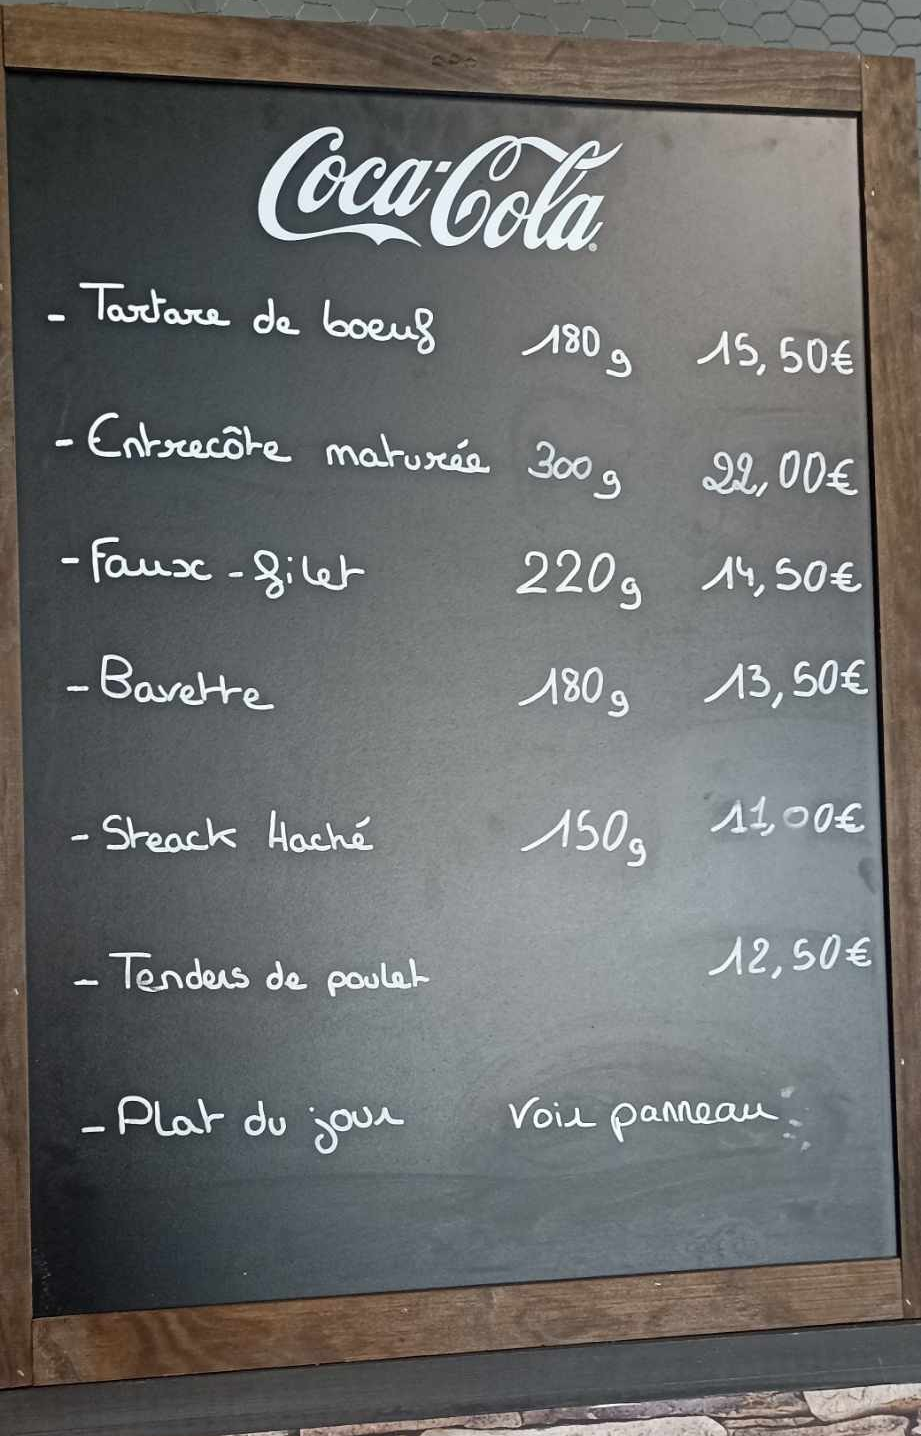 Coca-Cola
- Tartare de boeuf 180g 15,50€
- Entrecôte maturée 300g 22,00€
- Faux-filet 220g 14,50€
- Bavette 180g 13,50€
- Steack Haché 150g 11,00€
- Tenders de poulet 12,50€
- Plat du jour voir panneau